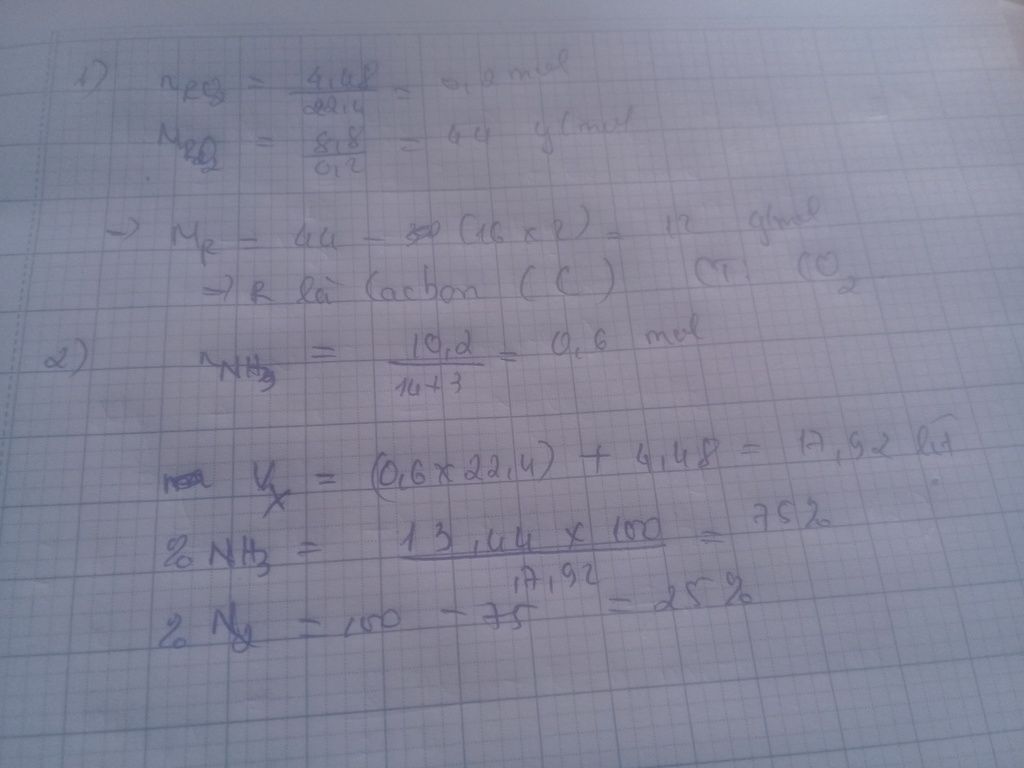 1) nRO2 = 4,48 / 22,4 = 0,2 mol
MRO2 = 8,8 / 0,2 = 44 g/mol
→ MR = 44 - (16 x 2) = 12 g/mol
→ R là Cacbon (C) CT: CO2
2) nNH3 = 10,2 / 14+3 = 0,6 mol
Vx = (0,6 x 22,4) + 4,48 = 17,92 lít
% NH3 = 13,44 x 100 / 17,92 = 75%
% N2 = 100 - 75 = 25%